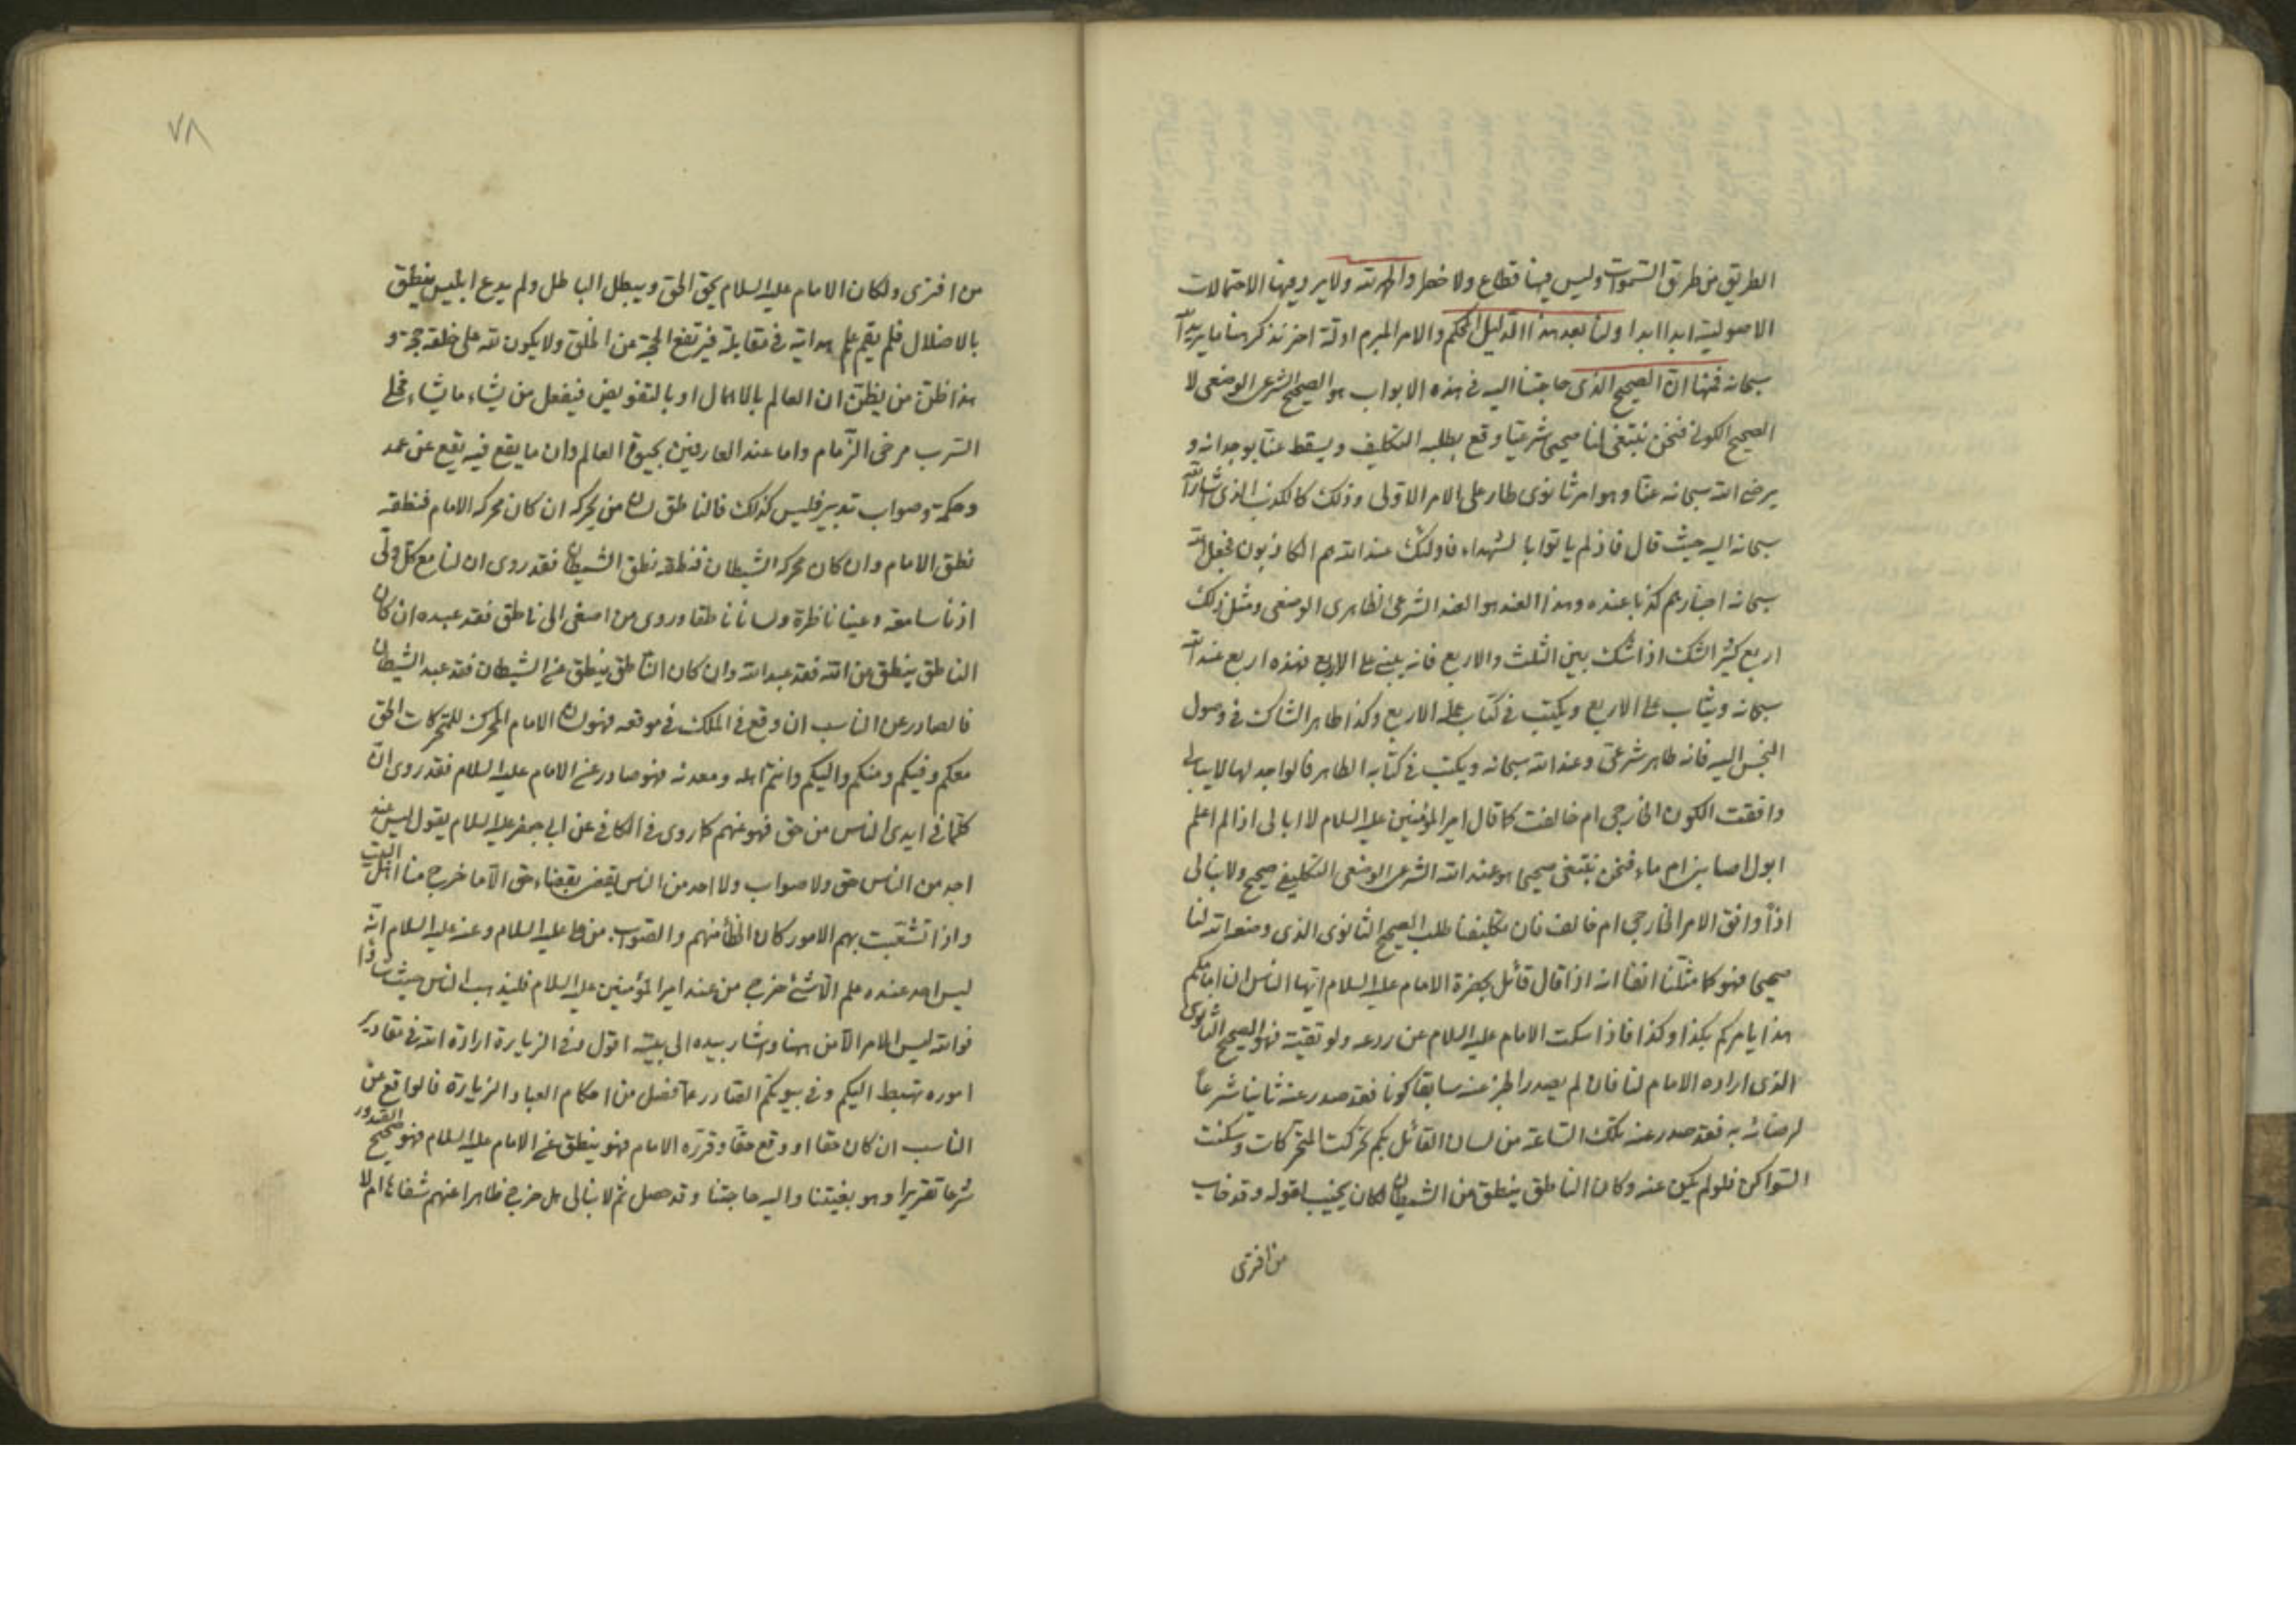 الطريق من طريق السموات وليس فيها قطاع ولا خطر والحمد لله ولا يرد فيها الاحتمالات
الاصولية ابدا ابدا ولنا بعد هذا الدليل المحكم والامر المبرم ادلة اخر نذكر هنا ما يريد الله
سبحانه فمنها ان الصحيح الذى حاجتنا اليه فى هذه الابواب هو الصحيح الشرعى الوضعى لا
الصحيح الكونى فنحن نبتغى لنا صحيحا شرعيا وقع بطلبه التكليف ويسقط عنا بوجدانه و
يرضى الله سبحانه عنا وهو امر ثانوى طار على الامر الاولى وذلك كالكذب الذى اشار الله
سبحانه اليه حيث قال فاذ لم ياتوا بالشهداء فاولئك عند الله هم الكاذبون فجعل الله
سبحانه اخبارهم كذبا عنده وهذا العند هو العند الشرعى الظاهرى الوضعى ومثل ذلك
اربع كثير الشك اذا شك بين الثلث والاربع فانه يبنى على الاربع فهذه اربع عند الله
سبحانه ويثاب على الاربع ويكتب فى كتاب عمله الاربع وكذا طاهر الشاك فى وصول
النجس اليه فانه طاهر شرعى وعند الله سبحانه ويكتب فى كتابه الطاهر فالواجد لها لا يبالى
وافقت الكون الخارجى ام خالفت كما قال امير المؤمنين عليه السلام لا ابالى اذا لم اعلم
ابول اصابنى ام ماء فنحن نبتغى صحيحا هو عند الله الشرعى الوضعى التكليفى صحيح ولا نبالى
اذا وافق الامر الخارجى ام خالف فان تكليفنا طلب الصحيح الثانوى الذى وضعه الله لنا
صحيحا فهو كما مثلنا انفا انه اذا قال قائل بحضرة الامام عليه السلام ايها الناس ان امامكم
هذا يامركم بكذا وكذا فاذا سكت الامام عليه السلام عن ردعه ولو تقية فهو الصحيح الثانوى
الذى اراده الامام لنا فان لم يصدر الخبر عنه سابقا كونا فقد صدر عنه ثانيا شرعا
لرضائه به فقد صدر عنه تلك الساعة من لسان القائل بكم تحركت المتحركات وسكنت
السواكن فلو لم يكن عنه وكان الناطق ينطق من الشيطان لكان يخيب لقوله وقد خاب
من افترى
٧٨
من افترى ولكان الامام عليه السلام يحق الحق ويبطل الباطل ولم يدع ابليس ينطق
بالاضلال فلم يقم علم هداية فى مقابلة فيرتفع الحجة عن الخلق ولا يكون لله على خلقه حجة و
هذا ظن من يظن ان العالم بالاهمال او بالتفويض فيفعل من يشاء ما يشاء مخلى
السرب مرخى الزمام واما عند العارفين بحيوة العالم وان ما يقع فيه يقع عن عمد
وحكمة وصواب تدبير فليس كذلك فالناطق لسان من يحركه ان كان محركه الامام فنطقه
نطق الامام وان كان محركه الشيطان فنطقه نطق الشيطان فقد روى ان لنا مع كل ولى
اذنا سامعة وعينا ناظرة ولسانا ناطقا وروى من اصغى الى ناطق فقد عبده ان كان
الناطق ينطق عن الله فقد عبد الله وان كان الناطق ينطق عن الشيطان فقد عبد الشيطان
فالصادر عن الناسب ان وقع فى الملك فى موقعه فهو لسان الامام المحرك للمتحركات الحق
معكم وفيكم ومنكم واليكم وانتم اهله ومعدنه فهو صادر عن الامام عليه السلام فقد روى ان
كلما فى ايدى الناس من حق فهو عنهم كما روى فى الكافى عن ابى جعفر عليه السلام يقول ليس عند
احد من الناس حق ولا صواب ولا احد من الناس يقضى بقضاء حق الا ما خرج منا اهل البيت
واذا تشعبت بهم الامور كان الخطأ منهم والصواب من على عليه السلام وعنه عليه السلام انه
ليس احد عنده علم الا شئ خرج من عند امير المؤمنين عليه السلام فليذهب الناس حيث شاؤا
فوالله ليس الامر الا من ههنا وشار بيده الى بيته اقول وفى الزيارة ارادة الله فى مقادير
اموره تهبط اليكم وفى بيوتكم الصادر عما فصل من احكام العباد الزيارة فالواقع عن
الناسب ان كان حقا او وقع حقا وقرره الامام فهو ينطق عن الامام عليه السلام فهو صحيح الصدور
شرعا تقريرا وهو بغيتنا واليه حاجتنا وقد حصل ثم لا نبالى هل خرج ظاهرا عنهم شفاها ام لا